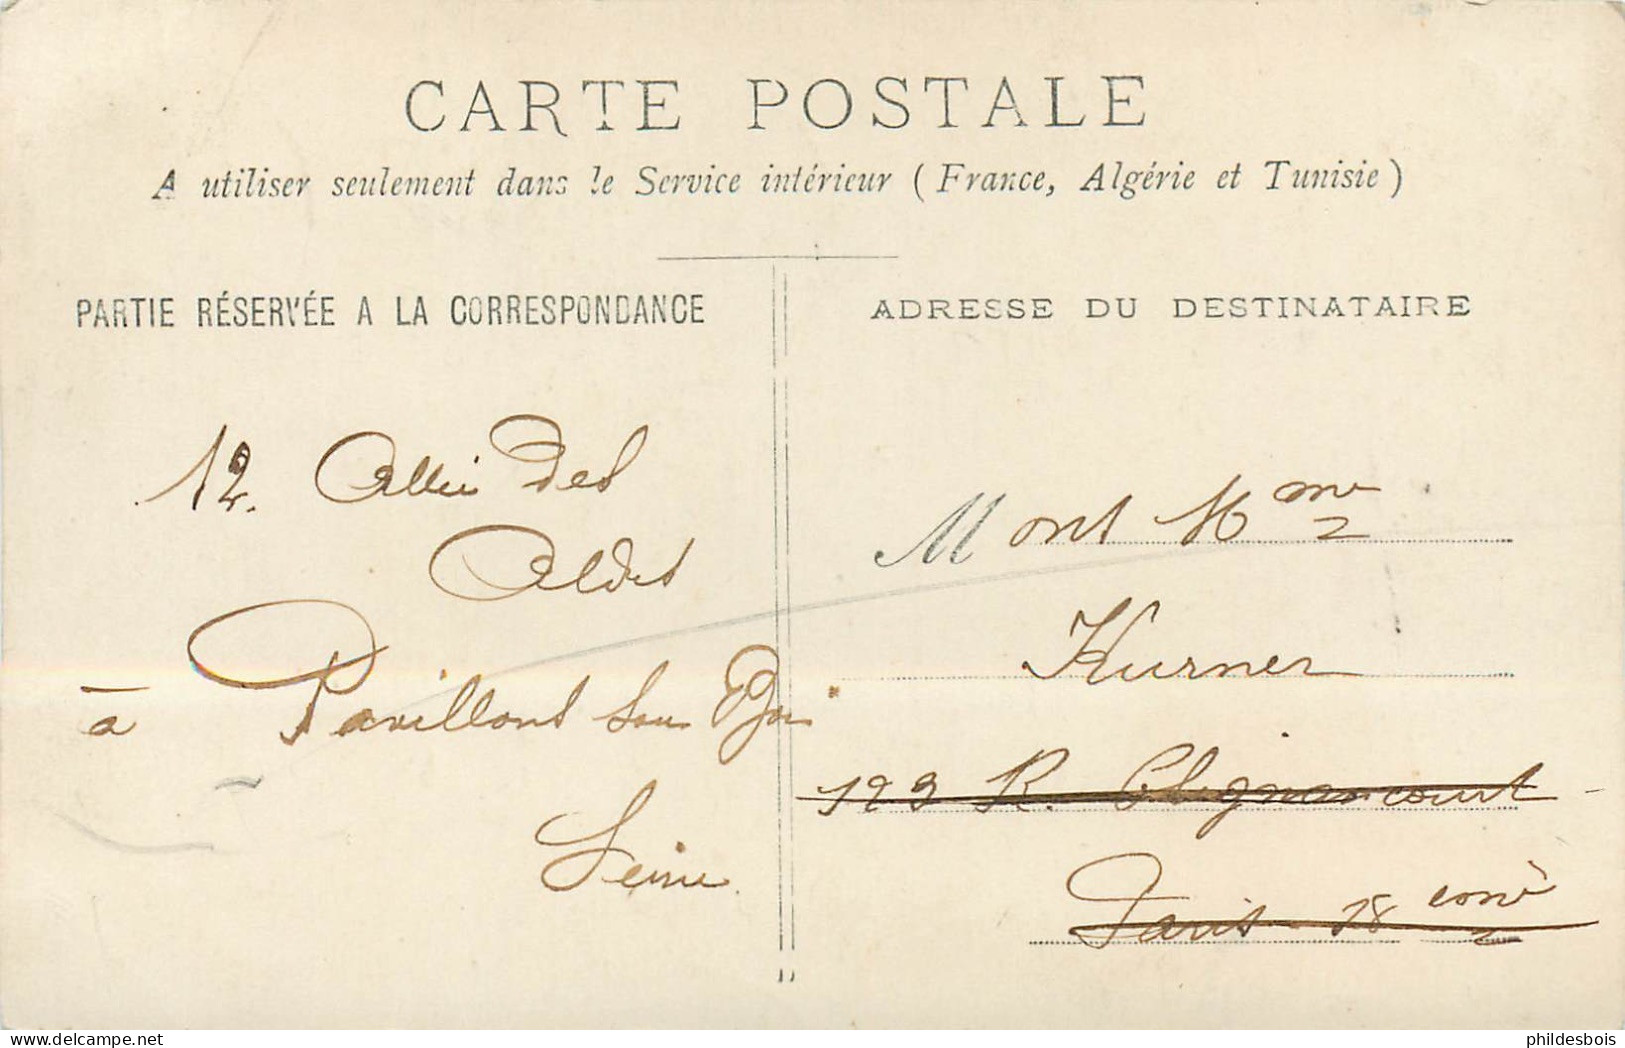 CARTE POSTALE
A utiliser seulement dans le Service intérieur (France, Algérie et Tunisie)
PARTIE RÉSERVÉE A LA CORRESPONDANCE
12. Allée des
à Pavillons sous Bois
Seine
ADRESSE DU DESTINATAIRE
M Mme
Kurner
123 R. Clignancourt
Paris 18
phildesbois